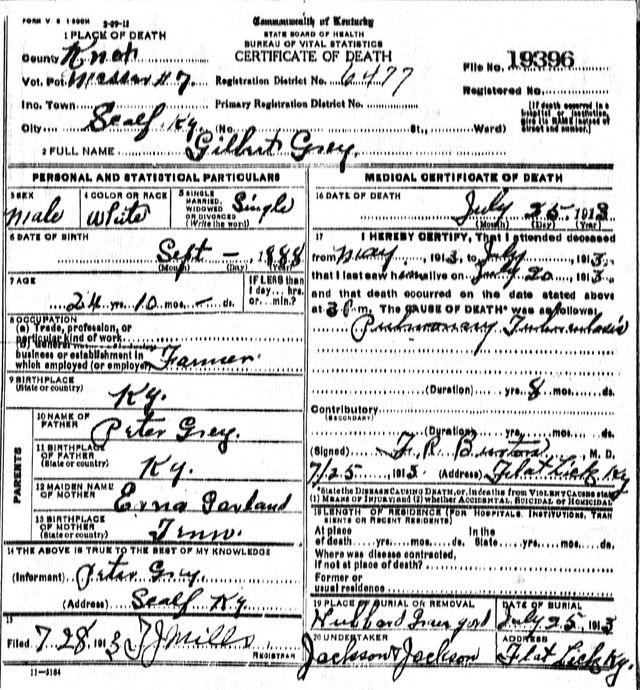 FORM V. S 1 500M 3-29-12
Commonwealth of Kentucky
STATE BOARD OF HEALTH
BUREAU OF VITAL STATISTICS
CERTIFICATE OF DEATH
1 PLACE OF DEATH
County Knox
Vot. Pct Messer #7 Registration District No. 6477
File No. 19396
Registered No.
Inc. Town Primary Registration District No.
[If death occurred in a hospital or institution, give its NAME instead of street and number.]
City Scalf Ky. (No. St., Ward)
2 FULL NAME Gilbert Grey.
PERSONAL AND STATISTICAL PARTICULARS
3 SEX Male
4 COLOR OR RACE White
5 SINGLE MARRIED, WIDOWED OR DIVORCED (Write the word) Single
6 DATE OF BIRTH
Sept — 1888
(Month) (Day) (Year)
7 AGE
24 yrs. 10 mos. — ds.
IF LESS than 1 day... hrs. or... min.?
8 OCCUPATION
(a) Trade, profession, or particular kind of work
business or establishment in which employed (or employer) Farmer.
9 BIRTHPLACE
(State or country) Ky.
PARENTS
10 NAME OF FATHER Peter Grey.
11 BIRTHPLACE OF FATHER (State or country) Ky.
12 MAIDEN NAME OF MOTHER Garland
13 BIRTHPLACE OF MOTHER (State or country) Tenn.
14 THE ABOVE IS TRUE TO THE BEST OF MY KNOWLEDGE
(Informant) Peter Grey.
(Address) Scalf Ky.
15
Filed 7 28, 1913 TJ Mills
REGISTRAR
11-3184
MEDICAL CERTIFICATE OF DEATH
16 DATE OF DEATH
July 25, 1913
(Month) (Day) (Year)
17 I HEREBY CERTIFY, That I attended deceased
from May, 1913, to July, 1913,
that I last saw him alive on July 20, 1913,
and that death occurred on the date stated above
at 3 P.m. The CAUSE OF DEATH* was as follows:
Pulmonary Tuberculosis
(Duration) yrs. 8 mos. ds.
Contributory
(SECONDARY)
(Duration) yrs. mos. ds.
(Signed) F. R. Burton, M. D.
7/25, 1913. (Address) Flat Lick Ky
*State the DISEASE CAUSING DEATH, or, in deaths from VIOLENT CAUSES state (1) MEANS OF INJURY; and (2) whether ACCIDENTAL, SUICIDAL or HOMICIDAL
18 LENGTH OF RESIDENCE (FOR HOSPITALS, INSTITUTIONS, TRANSIENTS OR RECENT RESIDENTS)
At place of death yrs. mos. ds. In the State yrs. mos. ds.
Where was disease contracted,
if not at place of death?
Former or
usual residence
19 PLACE OF BURIAL OR REMOVAL Hubbard Graveyard
DATE OF BURIAL July 25, 1913
20 UNDERTAKER Jackson & Jackson
ADDRESS Flat Lick Ky.